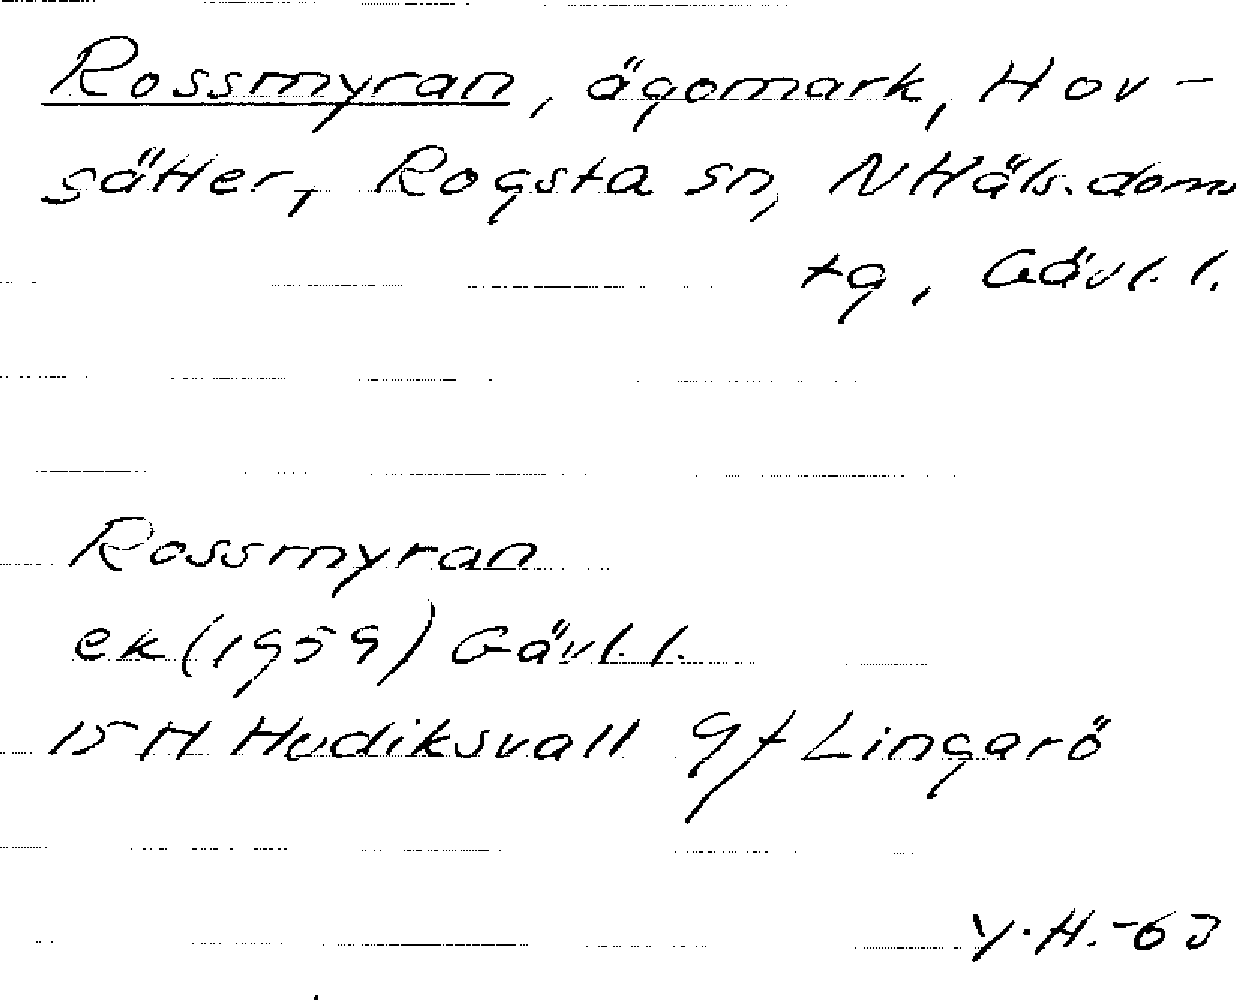 Rossmyran, ägomark, Hov-
sätter, Rogsta sn, N Häls. doms
tg, Gävl. l.
Rossmyran
ek (1959) Gävl. l.
15 H Hudiksvall 9f Lingarö
Y.H.-63